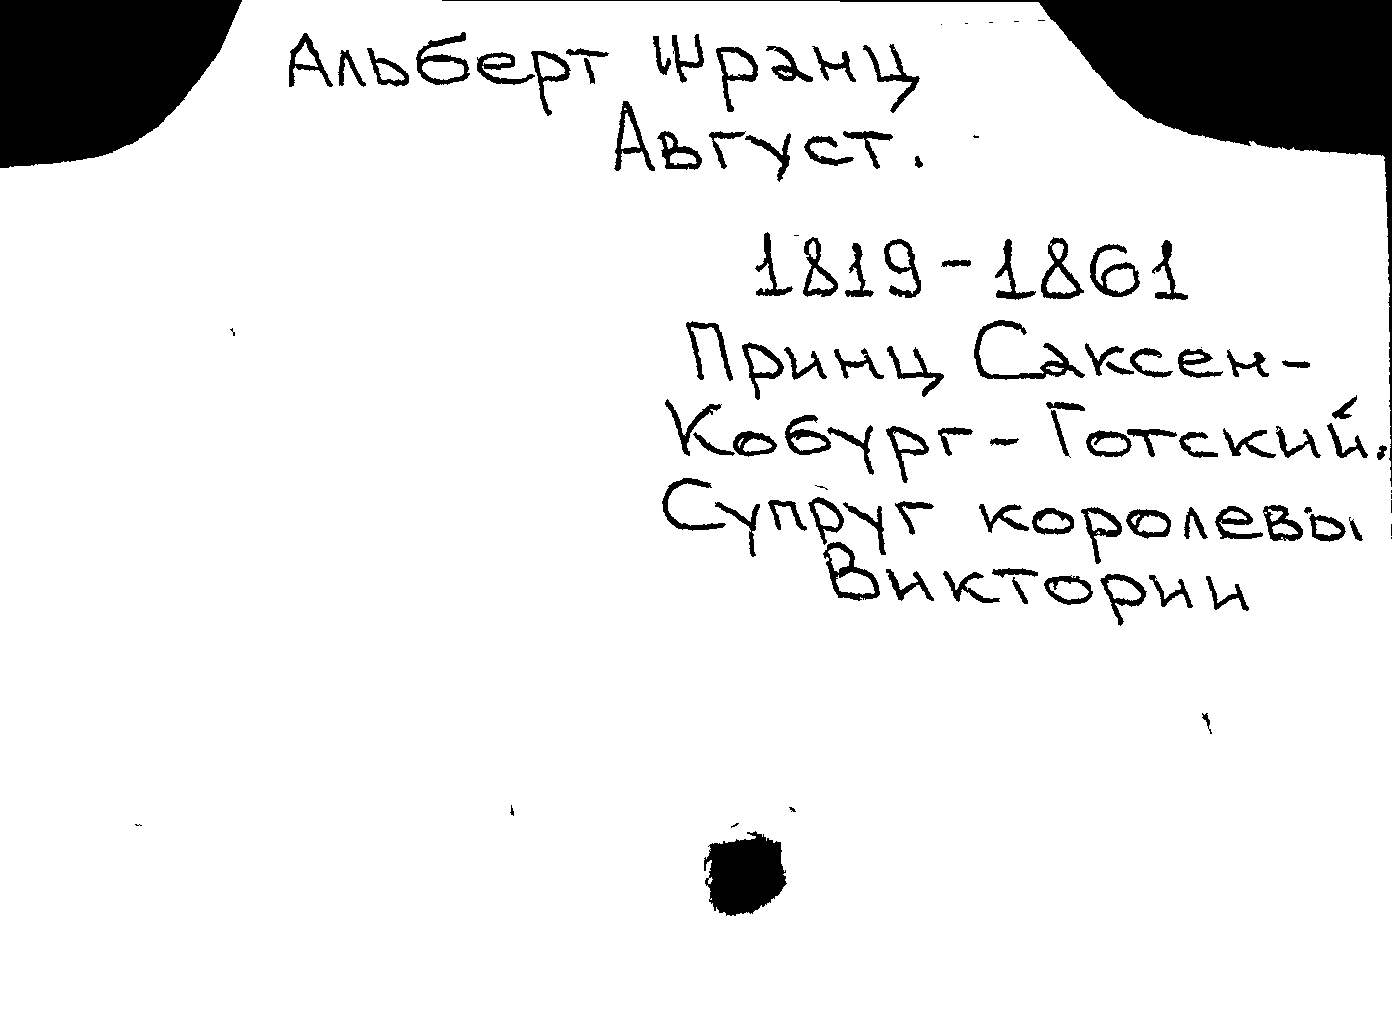 Альберт Франц
Август.
1819-1861
Принц Саксен-
Кобург-Готский.
Супруг королевы
Виктории